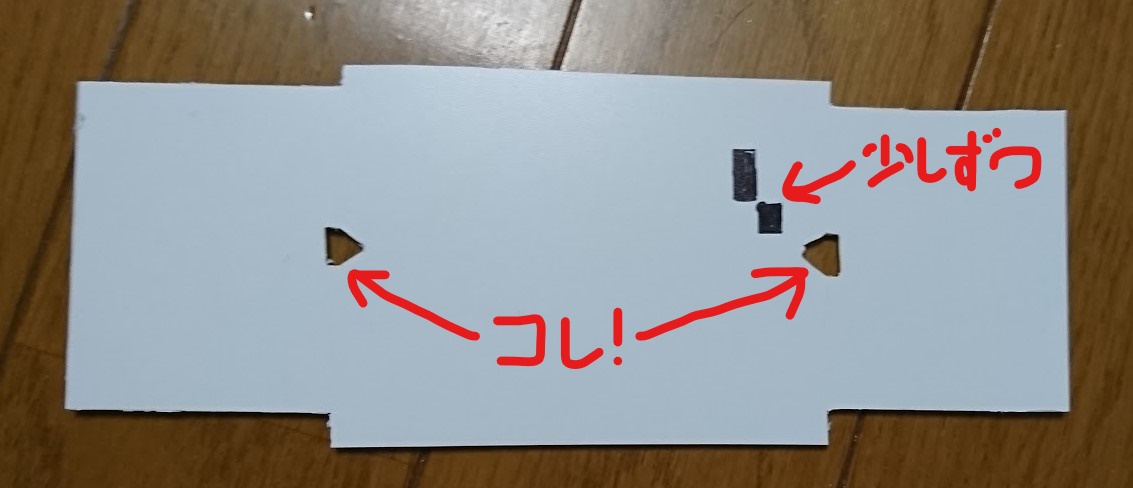 少しずつ
コレ!